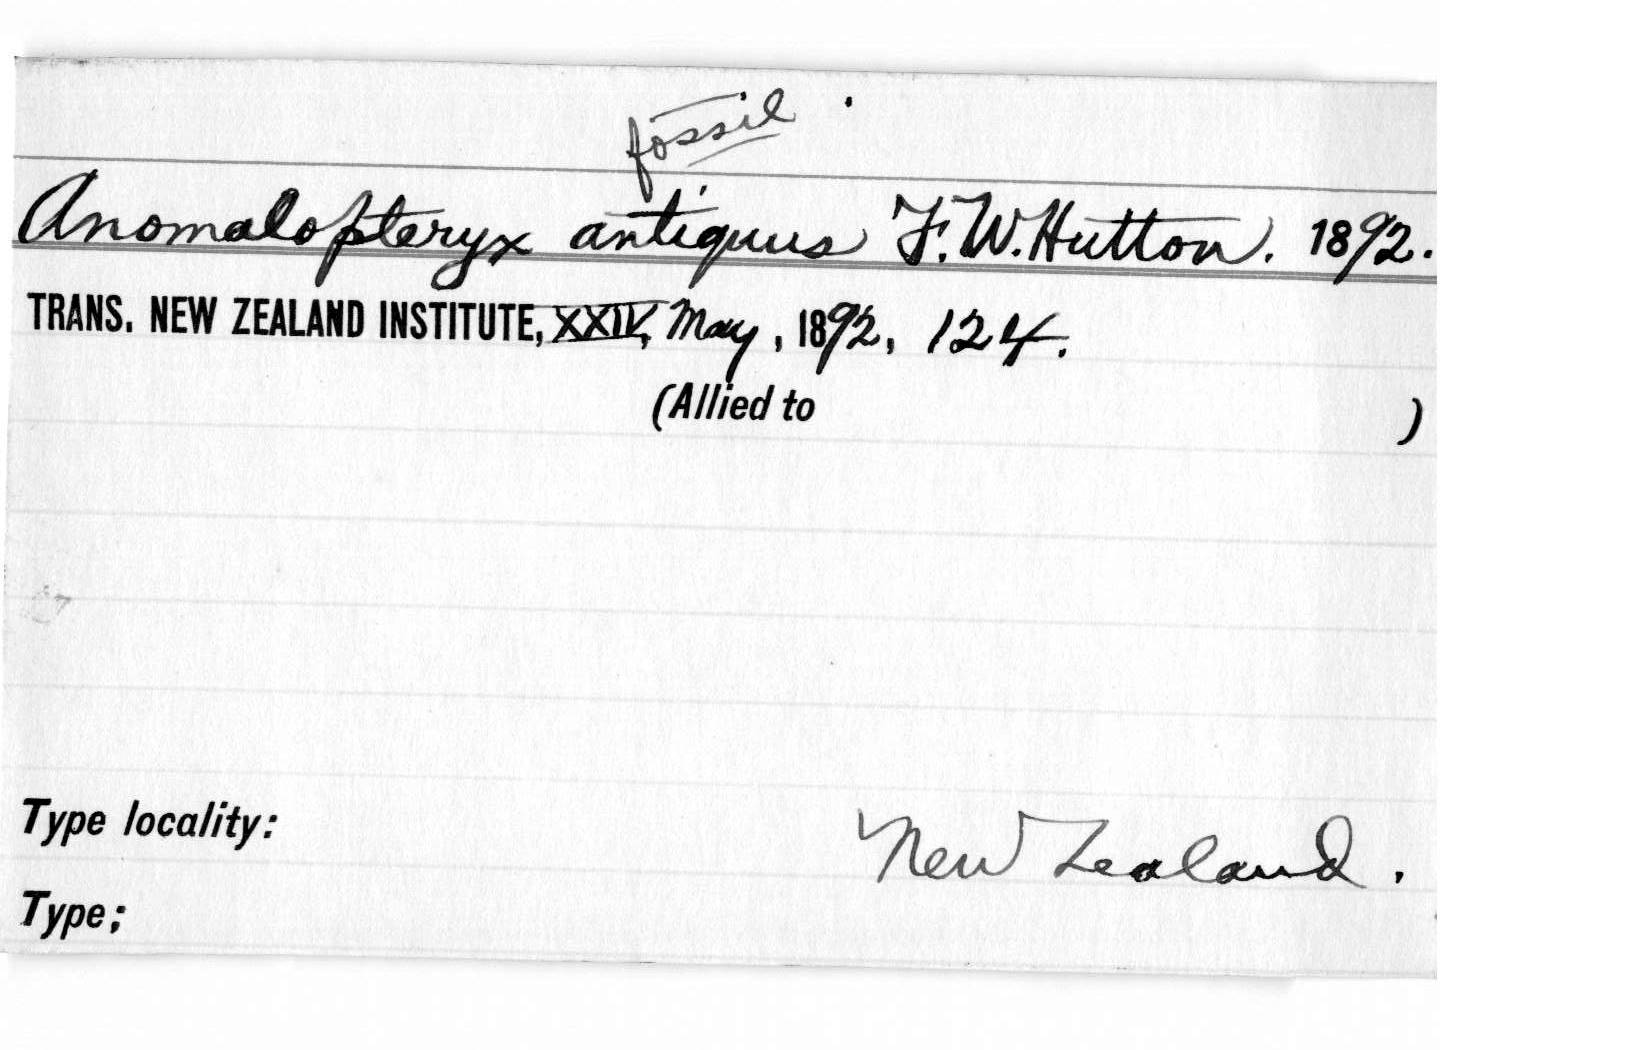 fossil
Anomalopteryx antiquus F.W.Hutton. 1892.
TRANS. NEW ZEALAND INSTITUTE, XXIV, May, 1892, 124.
(Allied to )
Type locality: New Zealand.
Type;